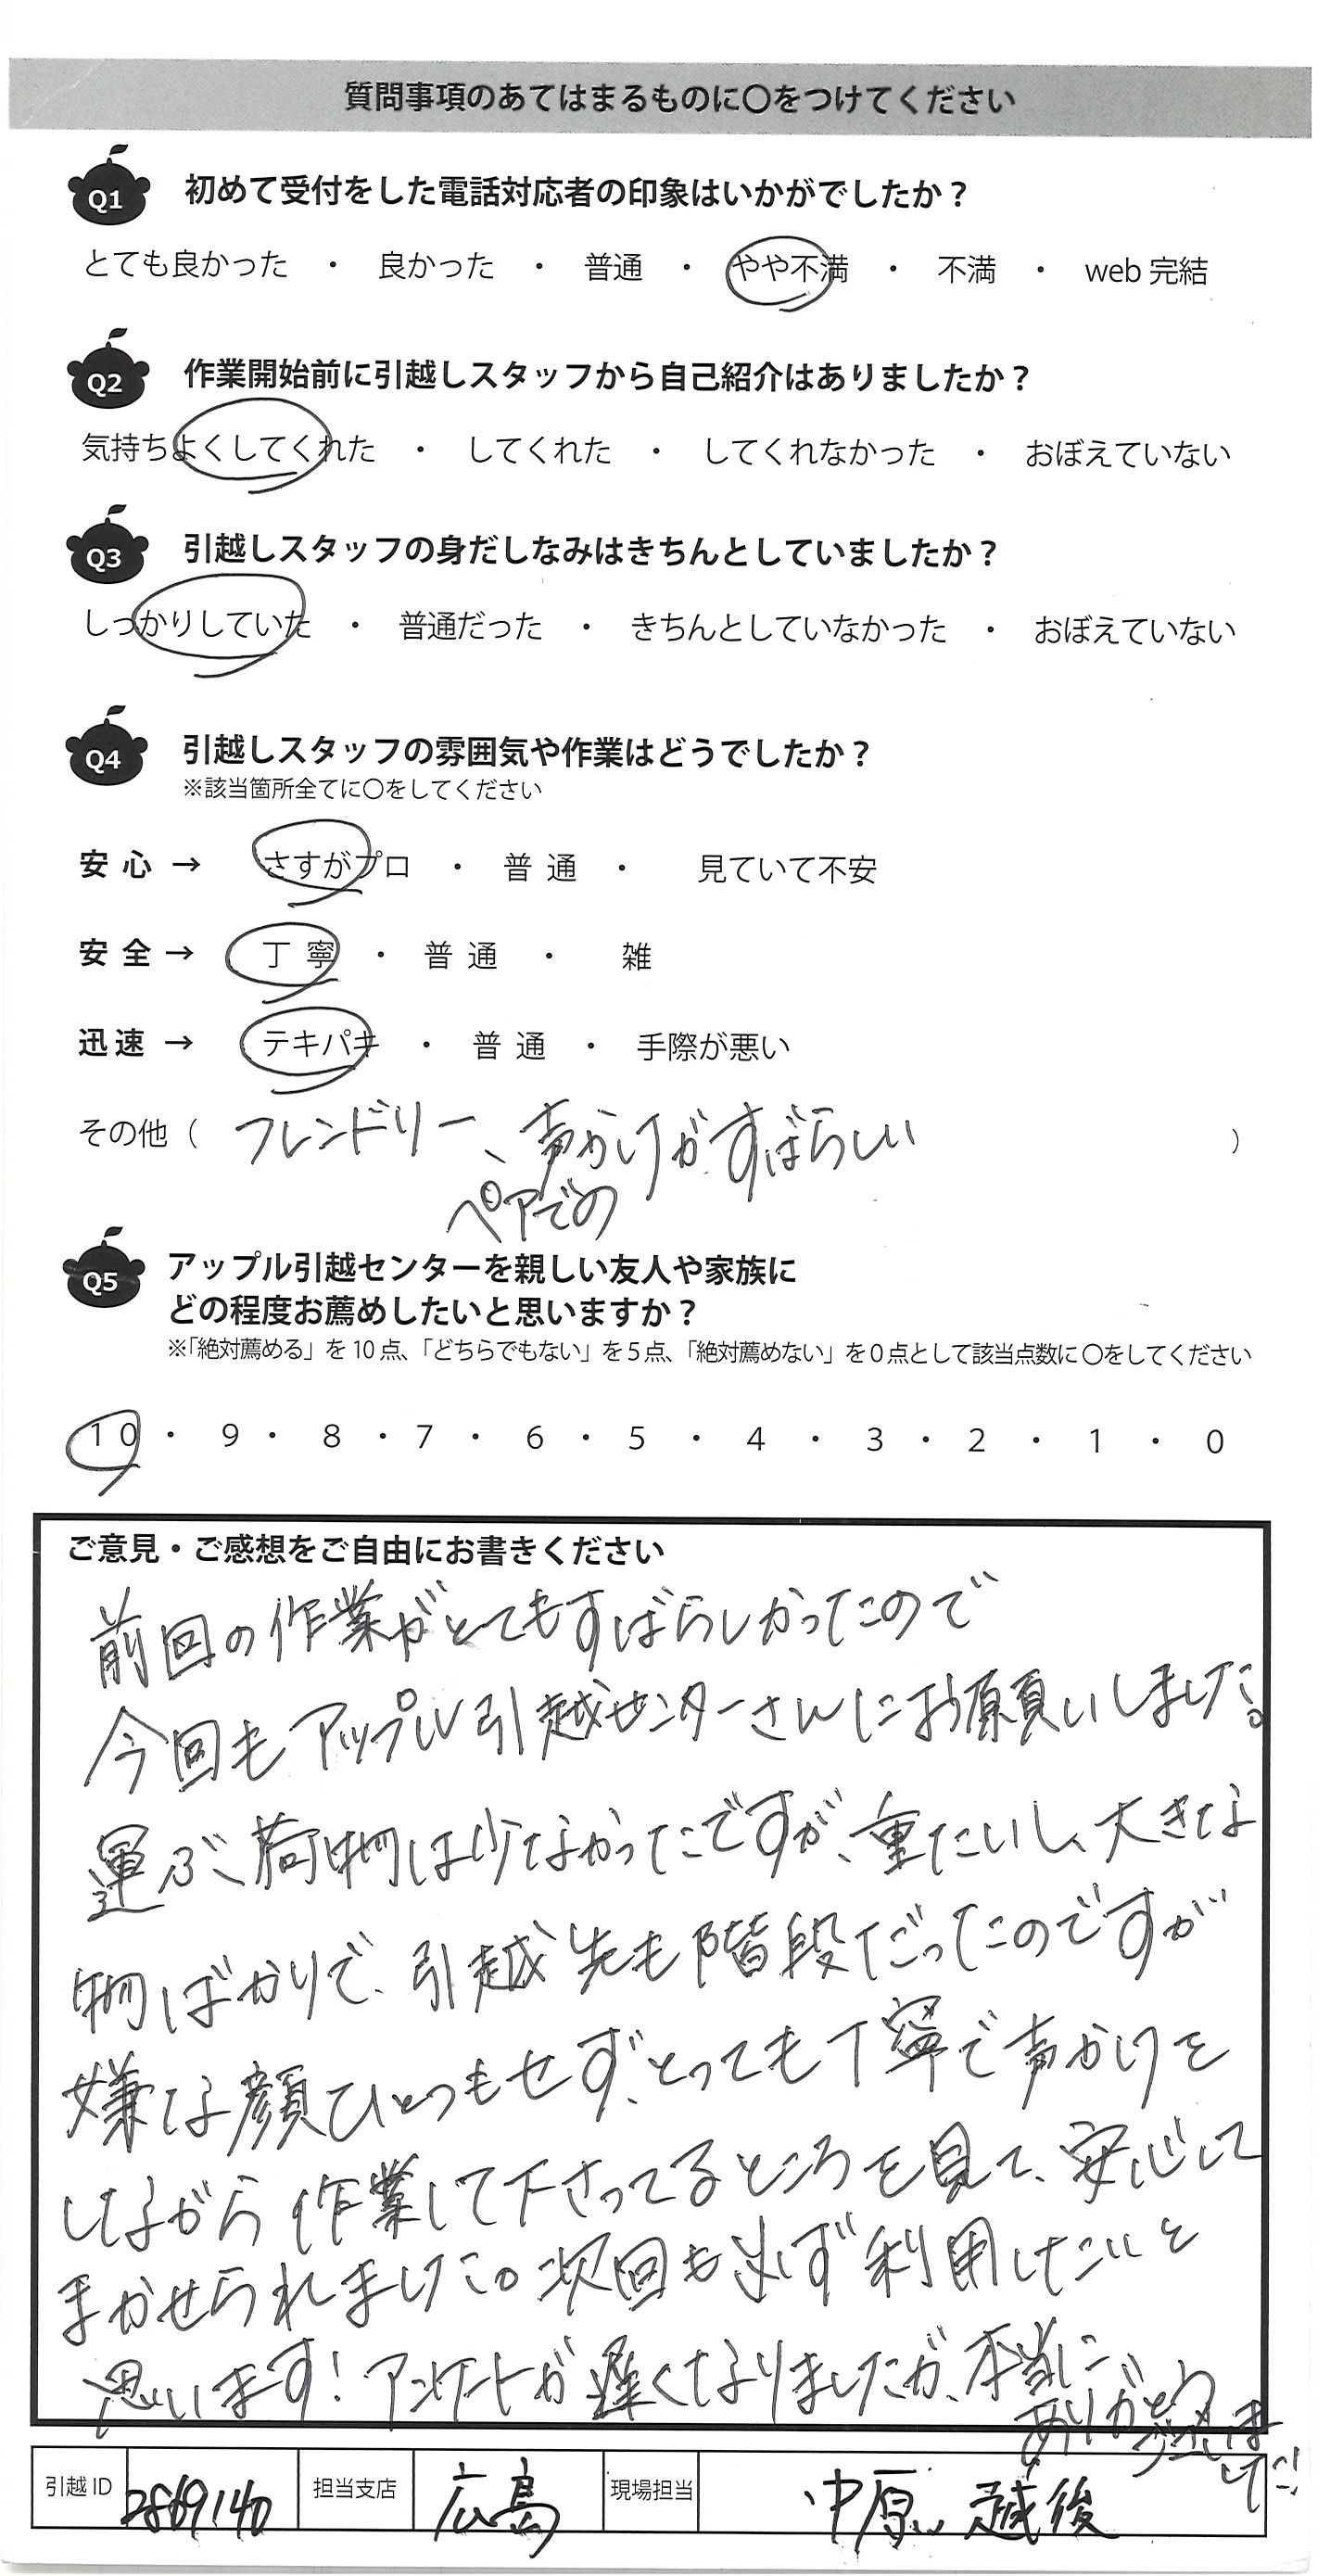 質問事項のあてはまるものに〇をつけてください
Q1 初めて受付をした電話対応者の印象はいかがでしたか？
とても良かった ・ 良かった ・ 普通 ・ やや不満 ・ 不満 ・ web 完結
Q2 作業開始前に引越しスタッフから自己紹介はありましたか？
気持ちよくしてくれた ・ してくれた ・ してくれなかった ・ おぼえていない
Q3 引越しスタッフの身だしなみはきちんとしていましたか？
しっかりしていた ・ 普通だった ・ きちんとしていなかった ・ おぼえていない
Q4 引越しスタッフの雰囲気や作業はどうでしたか？
※該当箇所全てに〇をしてください
安心 → さすがプロ ・ 普通 ・ 見ていて不安
安全 → 丁寧 ・ 普通 ・ 雑
迅速 → テキパキ ・ 普通 ・ 手際が悪い
その他（ フレンドリー、声かけがすばらしい ）
ペアでの
Q5 アップル引越センターを親しい友人や家族に
どの程度お薦めしたいと思いますか？
※「絶対薦める」を 10 点、「どちらでもない」を 5 点、「絶対薦めない」を 0 点として該当点数に 〇をしてください
10 ・ 9 ・ 8 ・ 7 ・ 6 ・ 5 ・ 4 ・ 3 ・ 2 ・ 1 ・ 0
ご意見・ご感想をご自由にお書きください
前回の作業がとてもすばらしかったので
今回もアップル引越センターさんにお願いしました。
運ぶ荷物は少なかったですが、重たいし、大きな
物ばかりで、引越先も階段だったのですが
嫌な顔ひとつもせず、とっても丁寧で声かけを
しながら作業して下さってるところを見て、安心して
まかせられました。次回も必ず利用したいと
思います！アンケートが遅くなりましたが、本当に
ありがとう
ございま
した!!
引越 ID 2869140 担当支店 広島 現場担当 中原 越後